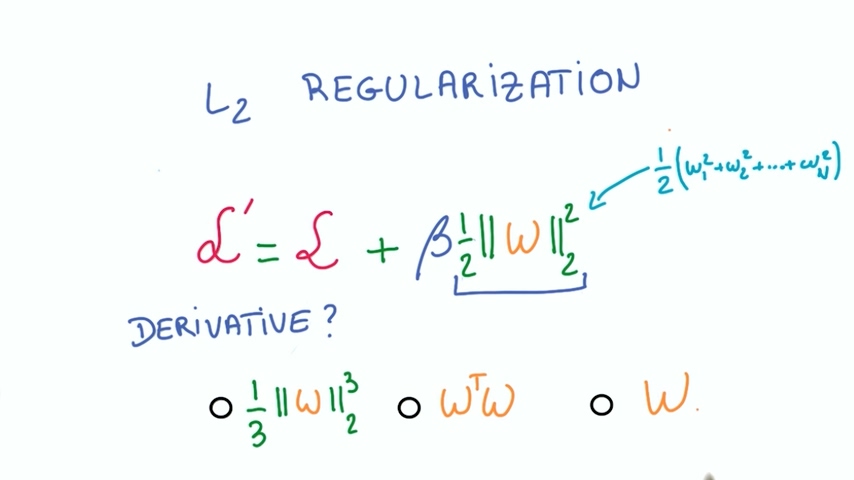 L₂ REGULARIZATION
½(w₁²+w₂²+...+w_N²)
ℒ' = ℒ + β ½‖w‖₂²
DERIVATIVE?
⅓‖w‖₂³ wᵀw w